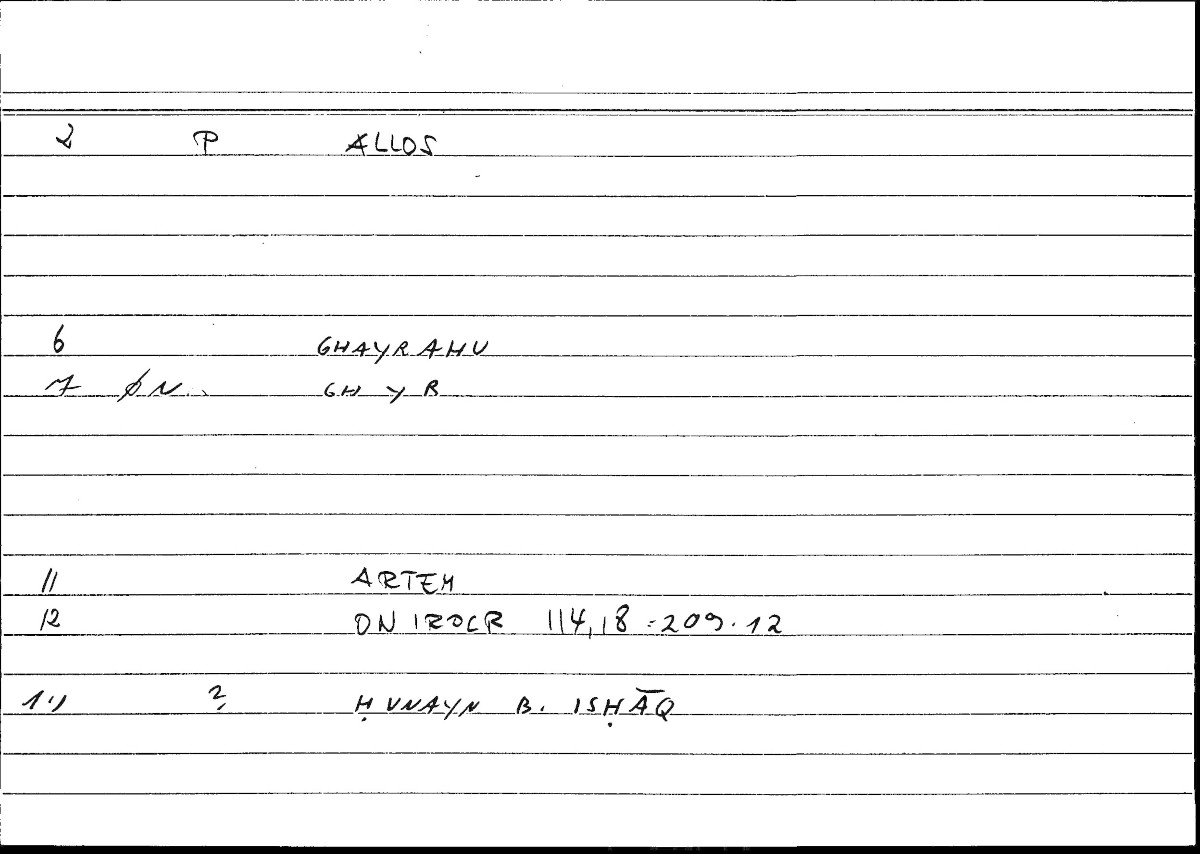 2 P ALLOS
6 GHAYRAHU
7 ØN.. GHYR
11 ARTEM
12 ONIROCR 114,18 = 209.12
ḤUNAYN B. ISḤĀQ